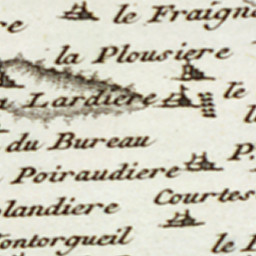 le Fraign
la Plousiere
Lardiere
le
du Bureau
Poiraudiere
P.
Courtes
landiere
ontorgueil
le